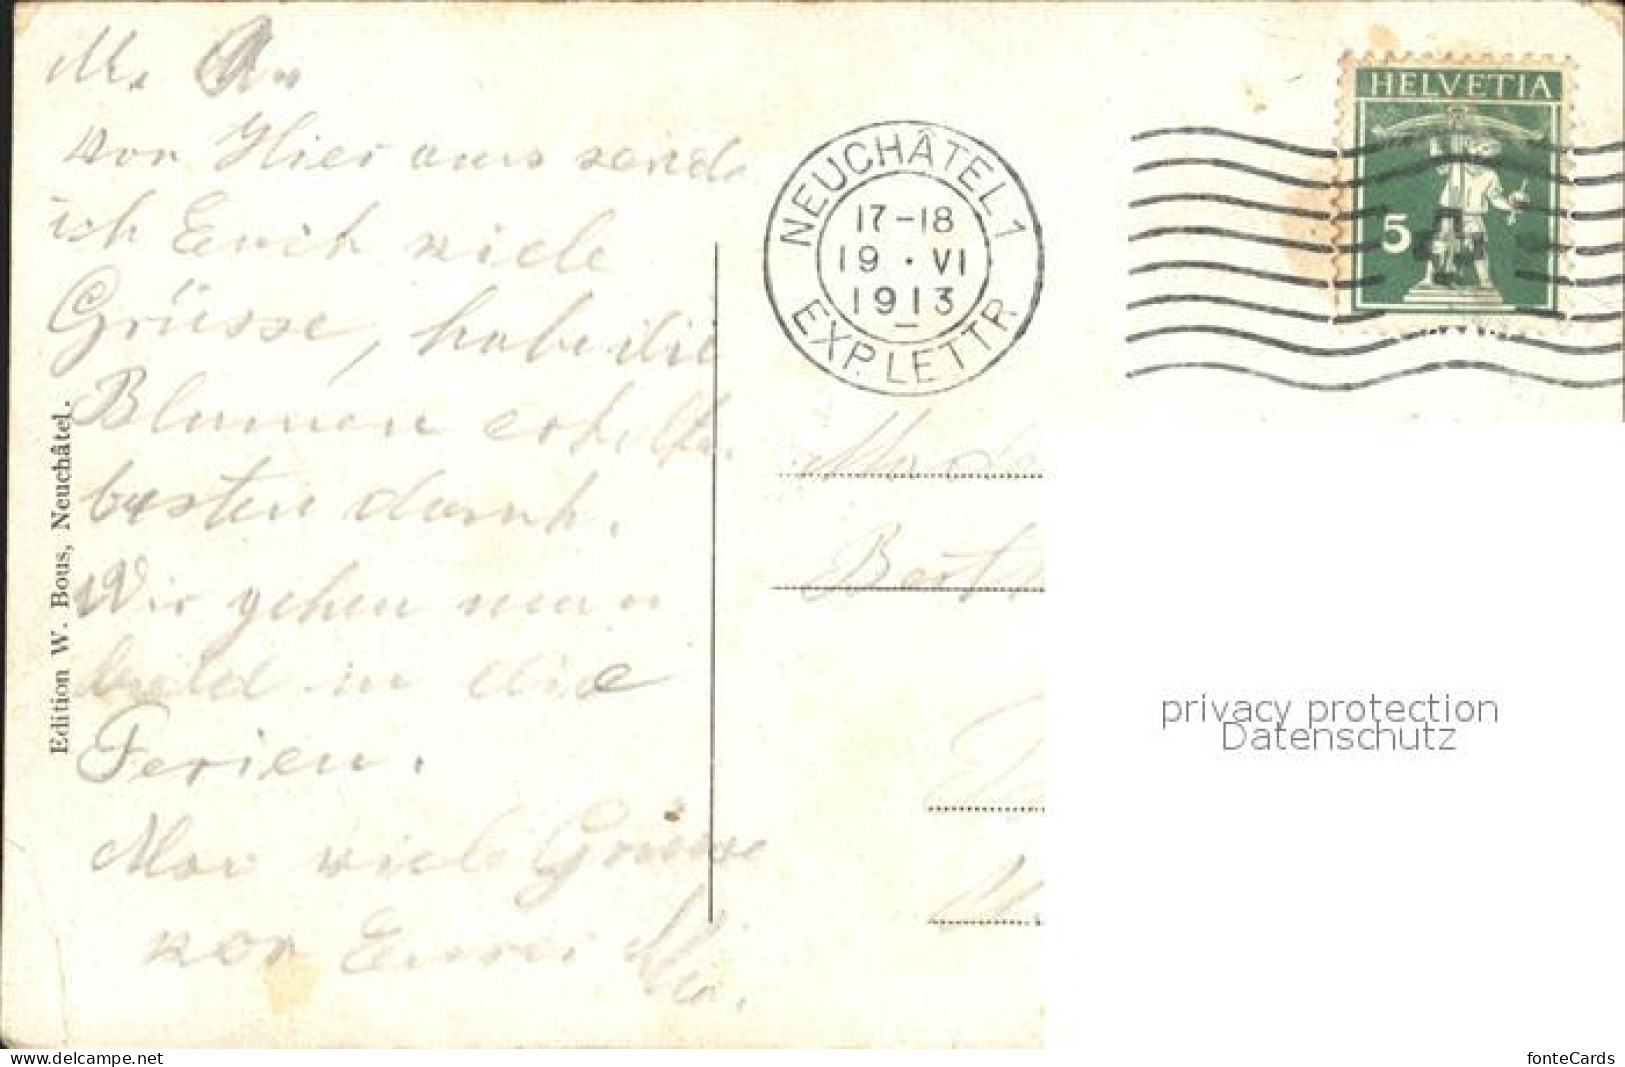 von Hier aus sende
ich Euch viele
Grüsse, habe die
Blumen erhalten
besten dank.
Wir gehen nun
bald in die
Ferien.
viele Grüsse
von Eurer
Edition W. Bous, Neuchâtel.
NEUCHÂTEL 1
17-18
19 · VI
1913
EXP. LETTR.
HELVETIA
5
privacy protection
Datenschutz
www.delcampe.net
fonteCards